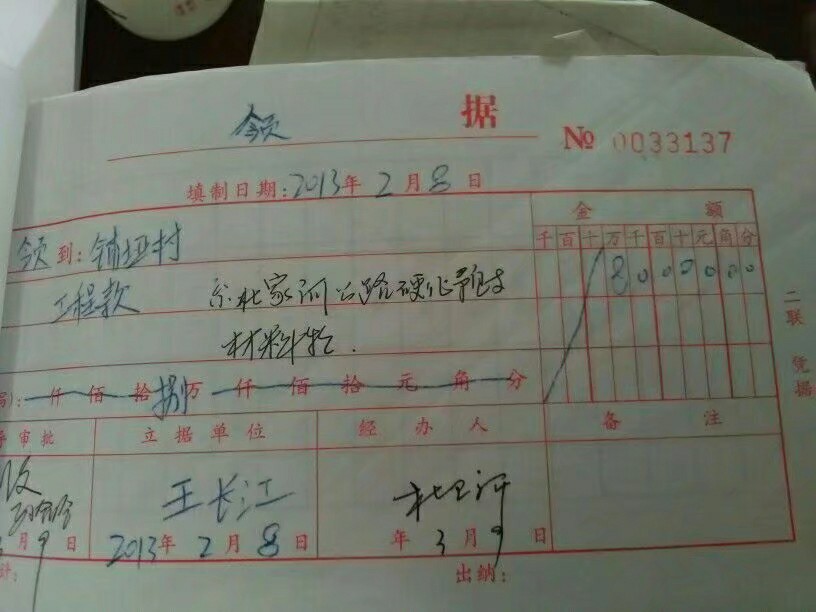 领 据
№ 0033137
填制日期:2013年2月8日
金 额
千百十万千百十元角分
领到:铺垭村
8000000
工程款 系杜家河公路硬化预付
材料款.
仟佰拾捌万仟佰拾元角分
审批 立据单位 经办人 备注
王长江
月9日 2013年2月8日 年3月9日
计: 出纳:
二联 凭据